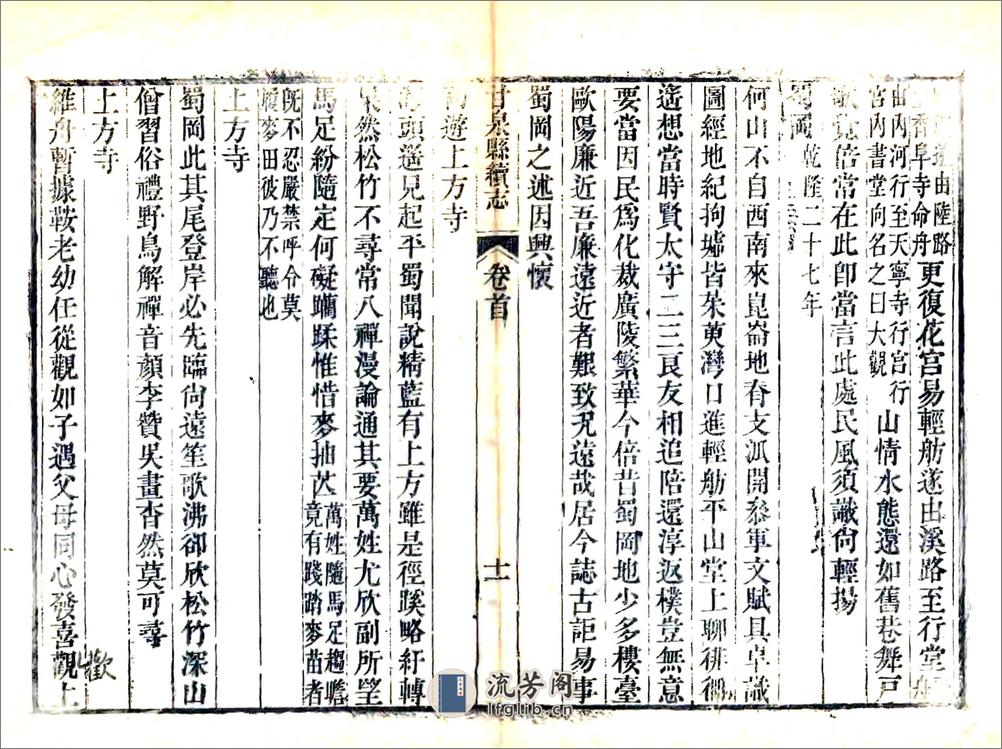 由陸路
香阜寺命舟
更復花宮易輕舫遂由溪路至行堂
由內河行至天寧寺行宮行
宮內書堂向名之曰大觀
山情水態還如舊巷舞戶
歌竟倍常在此卽當言此處民風須識尙輕揚
蜀岡
乾隆二十七年
何山不自西南來崑崙地脊支派開叅軍文賦具卓識
圖經地紀拘墟皆茱萸灣口進輕舫平山堂上聊徘徊
遙想當時賢太守二三良友相追陪還淳返樸豈無意
要當因民爲化裁廣陵繁華今倍昔蜀岡地少多樓臺
歐陽廉近吾廉遠近者艱致況遠哉居今誌古詎易事
蜀岡之述因興懷
甘泉縣續志
卷首
十一
遊上方寺
頭遥見起平蜀聞說精藍有上方雖是徑蹊略紆轉
果然松竹不尋常八禪漫論通其要萬姓尤欣副所望
馬足紛隨定何礙躪蹂惟惜麥抽芒
萬姓隨馬足趨瞻
竟有踐踏麥苗者
旣不忍嚴禁呼令莫
履麥田彼乃不聽也
上方寺
蜀岡此其尾登岸必先臨尙遠笙歌沸卻欣松竹深山
僧習俗禮野鳥解禪音顏李贊吳畫杳然莫可尋
上方寺
維舟暫據鞍老幼任從觀如子遇父母同心發喜觀上
歡
流芳阁
lfglib.cn